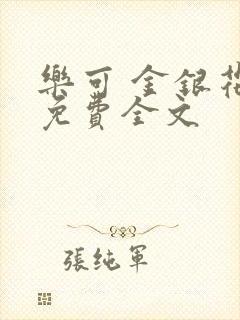 樂可 金銀花
免費全文
張純軍